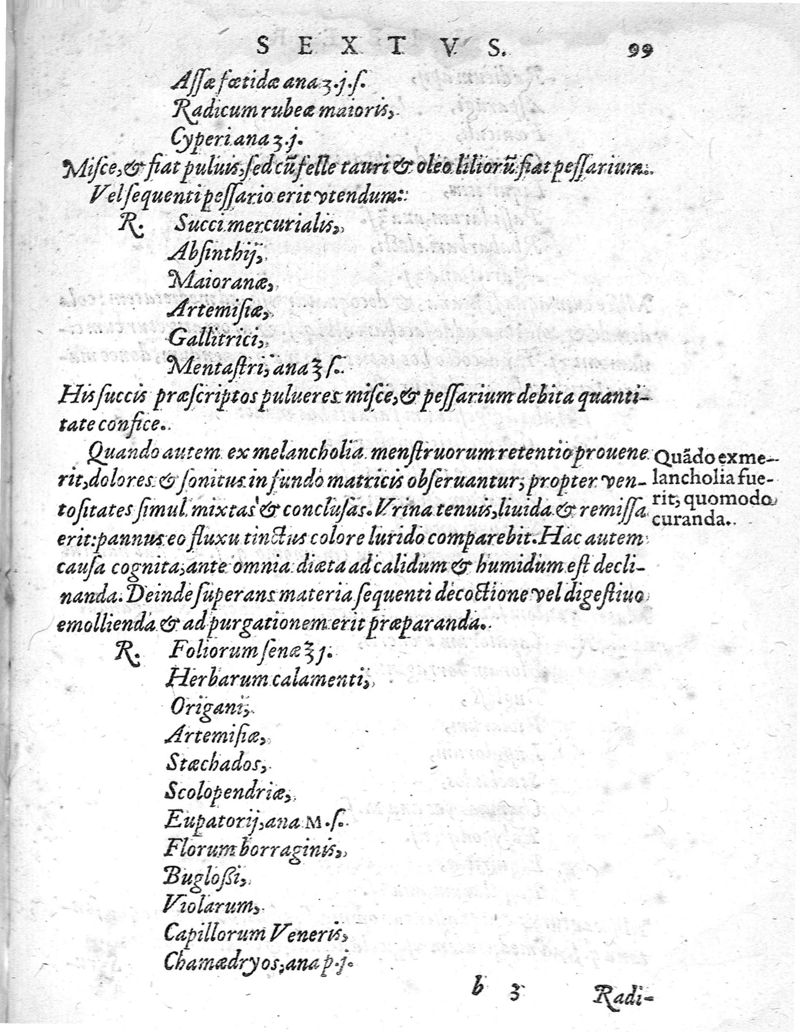 SEXTVS. 99
Assæ fœtidæ ana ʒ.j.ſ.
Radicum rubeæ maioris,
Cyperi ana ʒ.j.
Miſce, & fiat puluis, ſed cũ felle tauri & oleo liliorũ fiat peſſarium.
Vel ſequenti peſſario erit vtendum:
R. Succi mercurialis,
Abſinthij,
Maioranæ,
Artemiſiæ,
Gallitrici,
Mentaſtri, ana ℥ ſ.
His ſuccis præſcriptos pulueres miſce, & peſſarium debita quanti-
tate confice.
Quando autem ex melancholia menſtruorum retentio prouene
rit, dolores & ſonitus in fundo matricis obſeruantur, propter ven-
toſitates ſimul mixtas & concluſas. Vrina tenuis, liuida & remiſſa
erit: pannus eo fluxu tinctus colore lurido comparebit. Hac autem
cauſa cognita, ante omnia diæta ad calidum & humidum eſt decli-
nanda. Deinde ſuperans materia ſequenti decoctione vel digeſtiuo
emollienda & ad purgationem erit præparanda.
Quãdo ex me-
lancholia fue-
rit, quomodo
curanda.
R. Foliorum ſenæ ℥ j.
Herbarum calamenti,
Origani,
Artemiſiæ,
Stæchados,
Scolopendriæ,
Eupatorij, ana M.ſ.
Florum borraginis,
Bugloſsi,
Violarum,
Capillorum Veneris,
Chamædryos, ana p.j.
b 3 Radi-